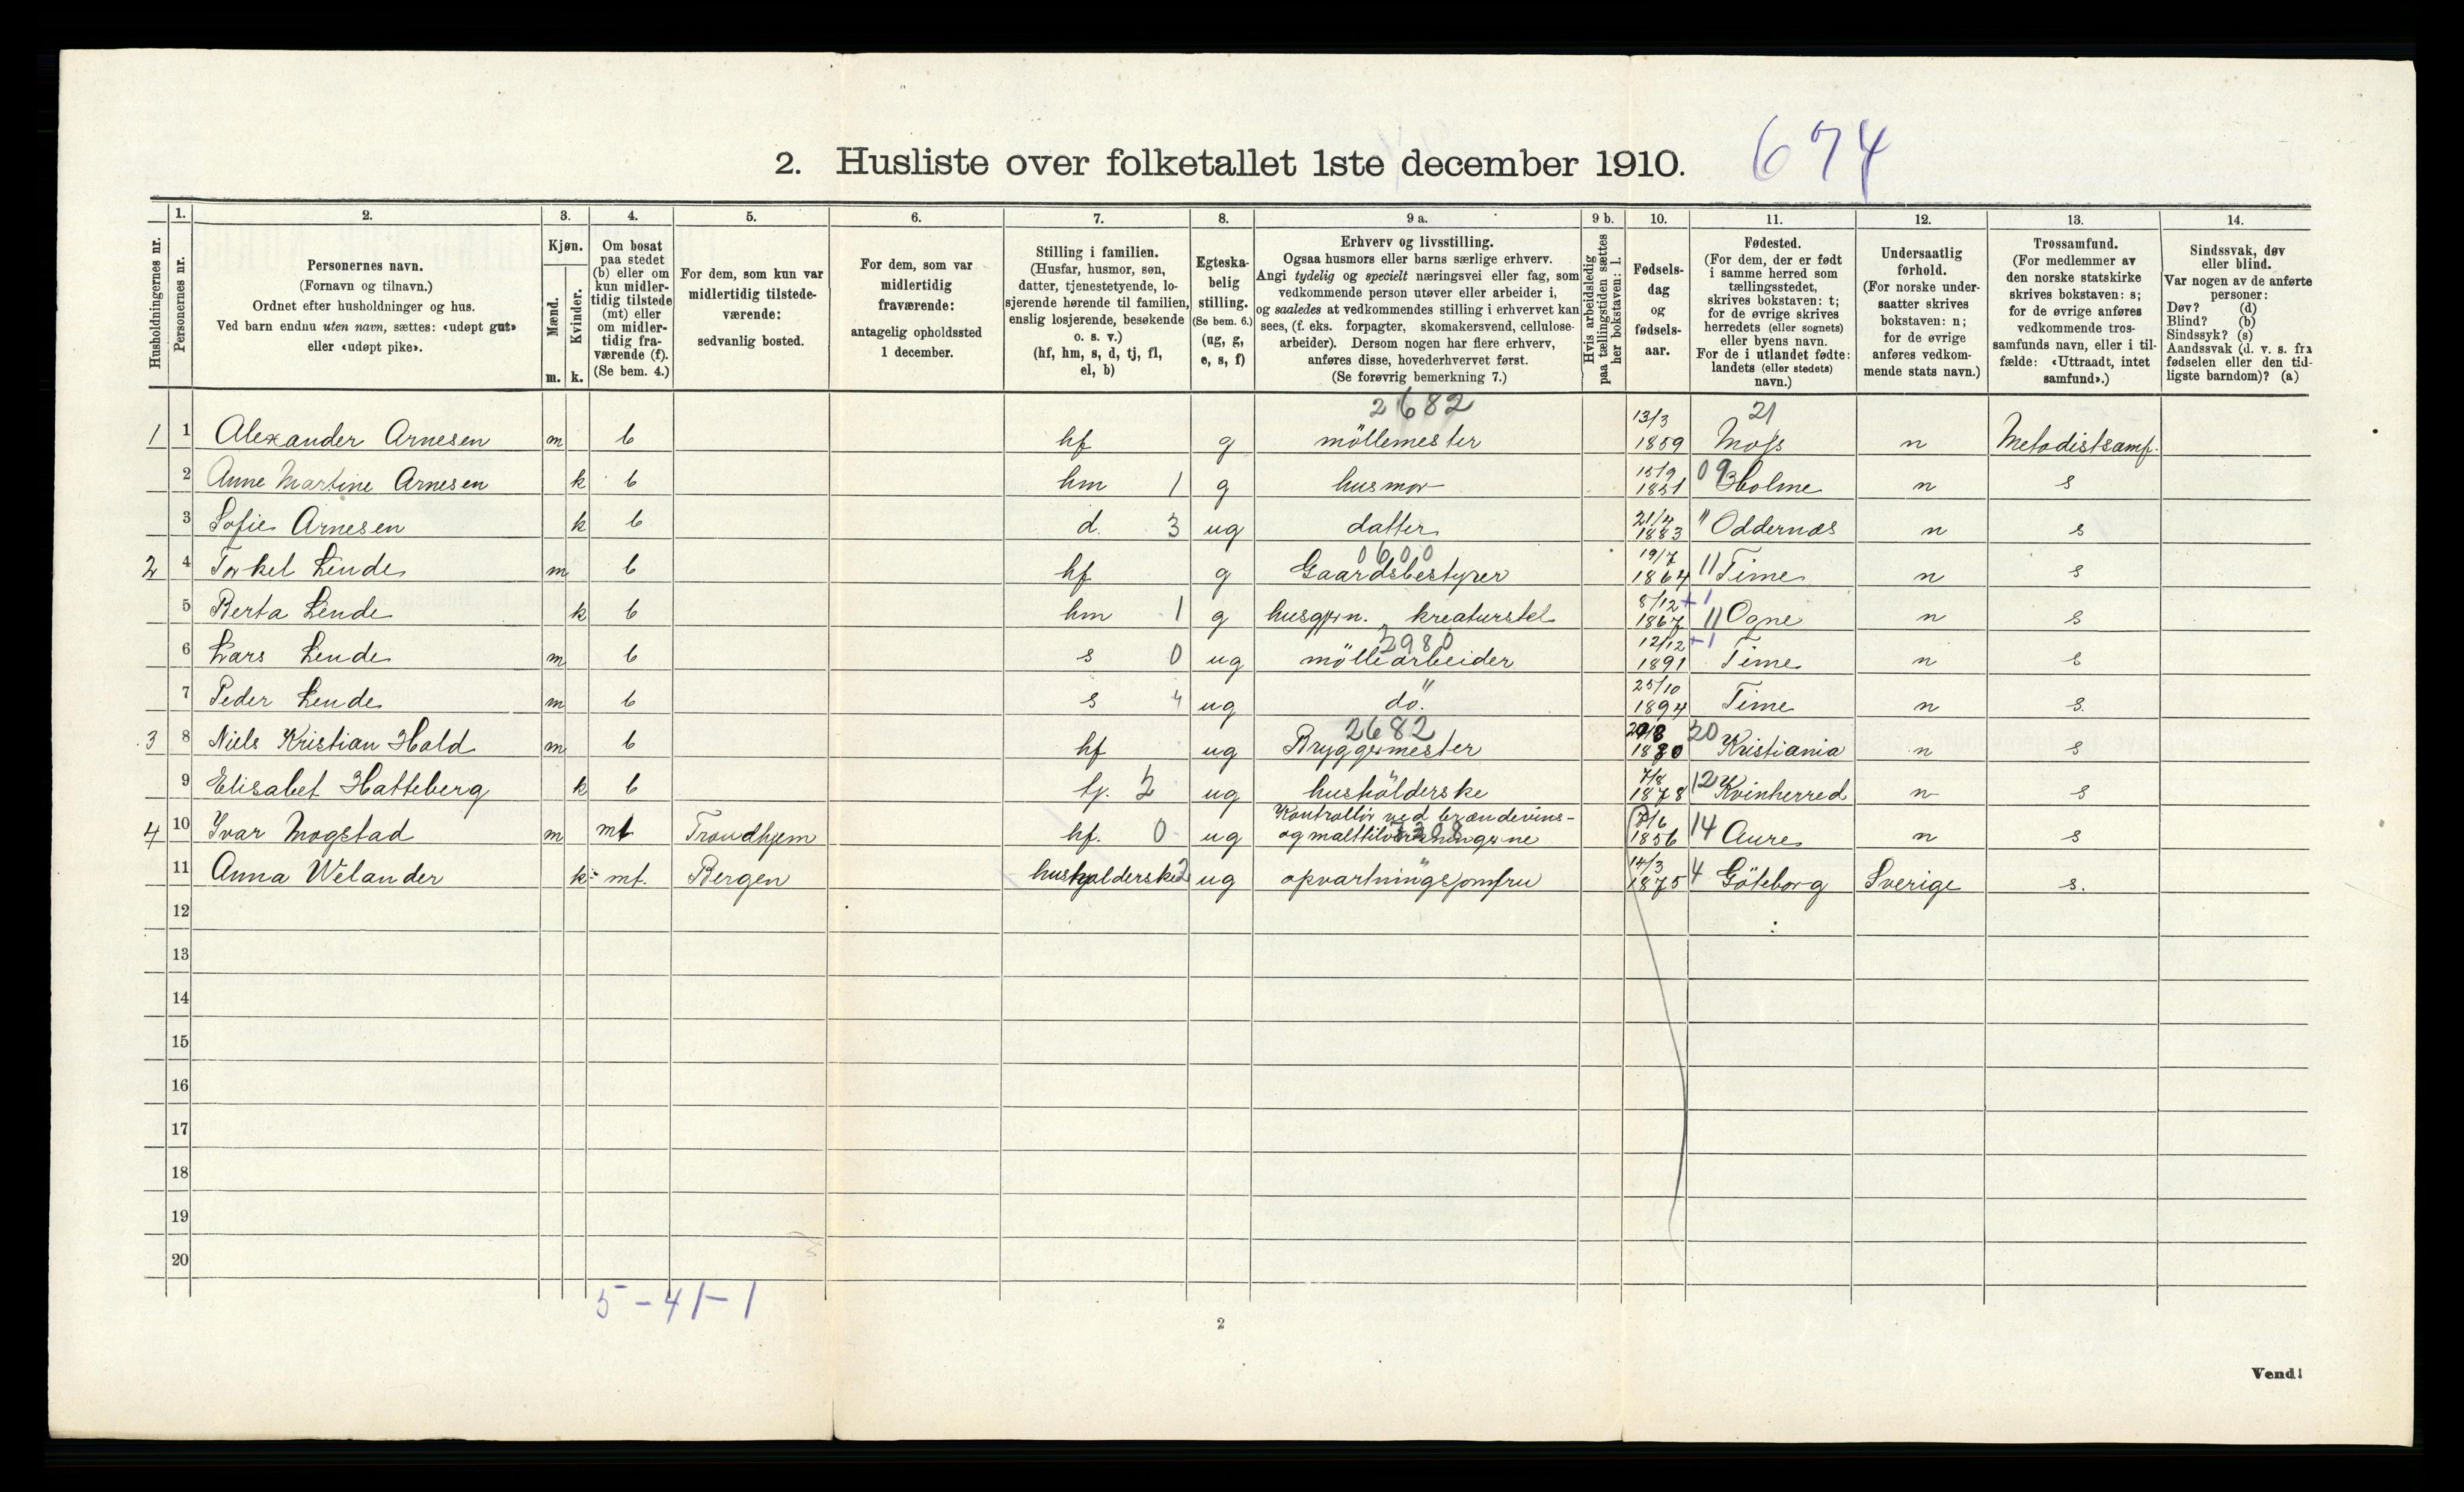 2. Husliste over folketallet 1ste december 1910.
674
1. 2. 3. 4. 5. 6. 7. 8. 9 a. 9 b. 10. 11. 12. 13. 14.
Husholdningernes nr.
Personernes nr.
Personernes navn.
(Fornavn og tilnavn.)
Ordnet efter husholdninger og hus.
Ved barn endnu uten navn, sættes: «udøpt gut»
eller «udøpt pike».
Kjøn.
Mænd.
Kvinder.
m. k.
Om bosat
paa stedet
(b) eller om
kun midler-
tidig tilstede
(mt) eller
om midler-
tidig fra-
værende (f).
(Se bem. 4.)
For dem, som kun var
midlertidig tilstede-
værende:
sedvanlig bosted.
For dem, som var
midlertidig
fraværende:
antagelig opholdssted
1 december.
Stilling i familien.
(Husfar, husmor, søn,
datter, tjenestetyende, lo-
sjerende hørende til familien,
enslig losjerende, besøkende
o. s. v.)
(hf, hm, s, d, tj, fl,
el, b)
Egteska-
belig
stilling.
(Se bem. 6.)
(ug, g,
e, s, f)
Erhverv og livsstilling.
Ogsaa husmors eller barns særlige erhverv.
Angi tydelig og specielt næringsvei eller fag, som
vedkommende person utøver eller arbeider i,
og saaledes at vedkommendes stilling i erhvervet kan
sees, (f. eks. forpagter, skomakersvend, cellulose-
arbeider). Dersom nogen har flere erhverv,
anføres disse, hovederhvervet først.
(Se forøvrig bemerkning 7.)
Hvis arbeidsledig
paa tællingstiden sættes
her bokstaven: l.
Fødsels-
dag
og
fødsels-
aar.
Fødested.
(For dem, der er født
i samme herred som
tællingsstedet,
skrives bokstaven: t;
for de øvrige skrives
herredets (eller sognets)
eller byens navn.
For de i utlandet fødte:
landets (eller stedets)
navn.)
Undersaatlig
forhold.
(For norske under-
saatter skrives
bokstaven: n;
for de øvrige
anføres vedkom-
mende stats navn.)
Trossamfund.
(For medlemmer av
den norske statskirke
skrives bokstaven: s;
for de øvrige anføres
vedkommende tros-
samfunds navn, eller i til-
fælde: «Uttraadt, intet
samfund».)
Sindssvak, døv
eller blind.
Var nogen av de anførte
personer:
Døv? (d)
Blind? (b)
Sindssyk? (s)
Aandssvak (d. v. s. fra
fødselen eller den tid-
ligste barndom)? (a)
2682 13/3 21
1 1 Alexander Arnesen m b hf g möllemester 1859 Moss n Metodistsamf.
15/9
2 Anne Martine Arnesen k b hm 1 g husmor 1851 09 Holme n s
21/4
3 Sofie Arnesen k b d. 3 ug datter 1883 " Oddernes n s
0600 19/7
2 4 Torkel Lende m b hf g Gaardsbestyrer 1864 11 Time n s
8/12 +1
5 Berta Lende k b hm 1 g husgjern. kreaturstel 1867 11 Ogne n s
3980 12/12 +1
6 Lars Lende m b s 0 ug möllearbeider 1891 Time n s
" 25/10
7 Peder Lende m b s 4 ug do. 1894 Time n s.
2682 20/8 20
3 8 Niels Kristian Hald m b hf ug Bryggermester 1880 Kristiania n s
7/8
9 Elisabet Hatteberg k b tj. 2 ug husholderske 1878 12 Kvinherred n s
Kontrollör ved brændevins- 7/6
4 10 Ivar Mogstad m mt Trondhjem hf. 0 ug og malttilvirkningerne 1856 14 Aure n s
14/3
11 Anna Welander k mt. Bergen husholderske 2 ug opvartningsjomfru 1875 4 Göteborg Sverige s.
12
13
14
15
16
17
18
19
20
5-41-1
2
Vend!